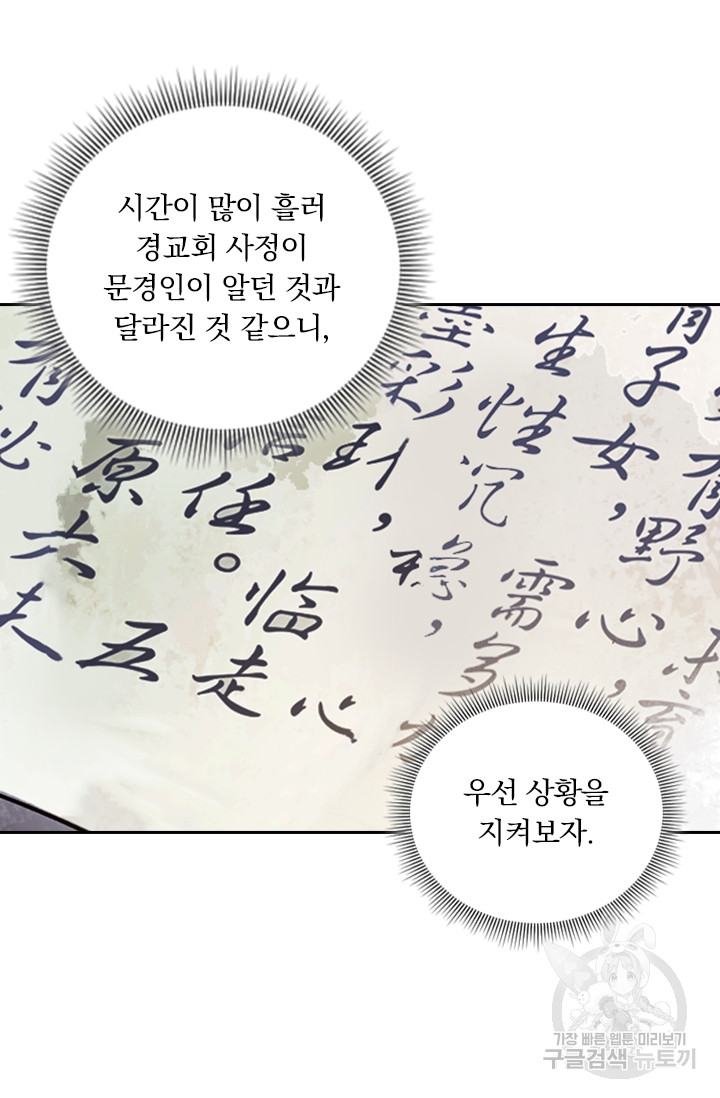 시간이 많이 흘러
경교회 사정이
문경인이 알던 것과
달라진 것 같으니,
墨彩
生性沉稳,
子女,
野心
需多
原任。
临走
六
五
心
우선 상황을
지켜보자.
가장 빠른 웹툰 미리보기
구글검색 뉴토끼